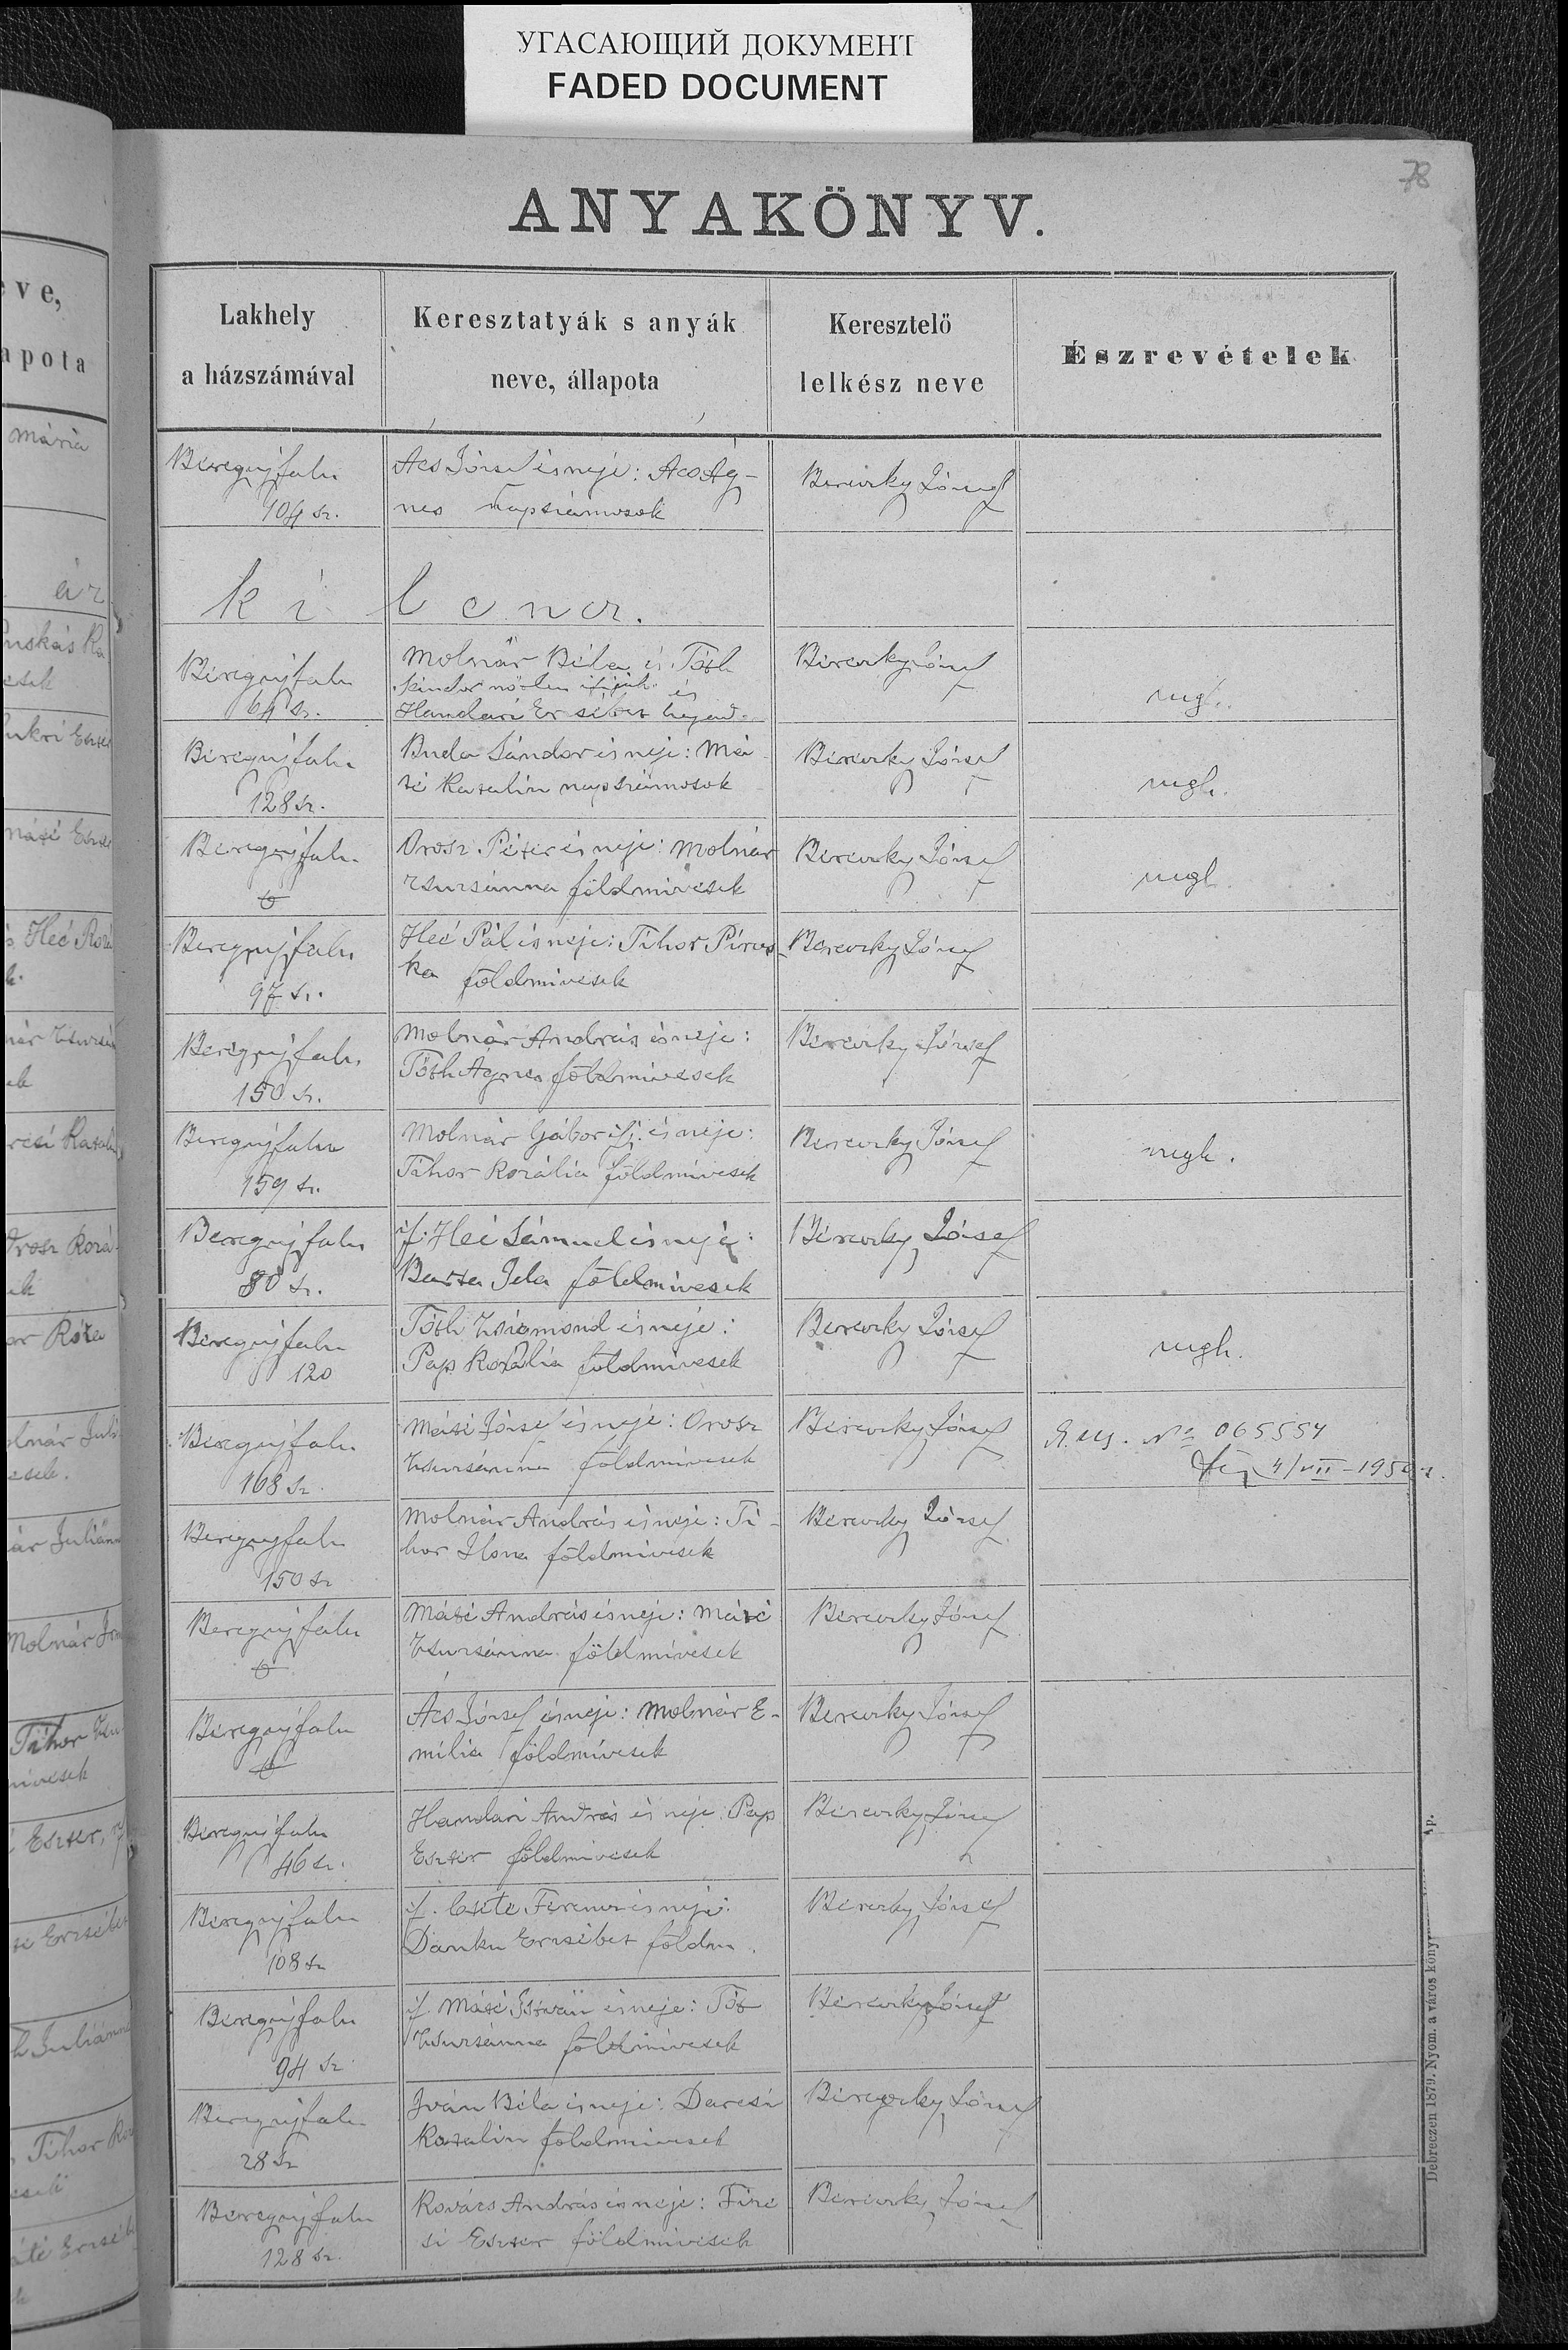 УГАСАЮЩИЙ ДОКУМЕНТ
FADED DOCUMENT
78
ANYAKÖNYV.
Lakhely
a házszámával
Keresztatyák s anyák
neve, állapota
Keresztelő
lelkész neve
Észrevételek
Beregújfalu
104 sz.
Ács József és neje: Ács Ág-
nes napszámosok
Bereczky József
ki lencz.
Beregújfalu
64 sz.
Molnár Béla és Tóth
Sándor nőtlen ifjak és
Handari Erzsébet hajad.
Bereczky József
megh.
Beregújfalu
128 sz.
Buda Sándor és neje: Má
té Katalin napszámosok
Bereczky József
megh.
Beregújfalu
Orosz Péter és neje: Molnár
Zsuzsánna földmívesek
Bereczky József
megh.
Beregújfalu
97 sz.
Heé Pál és neje: Tihor Pirus-
ka földmívesek
Bereczky József
Beregújfalu
150 sz.
Molnár András és neje:
Tóth Ágnes földmívesek
Bereczky József
Beregújfalu
159 sz.
Molnár Gábor ifj. és neje:
Tihor Rozália földmívesek
Bereczky József
megh.
Beregújfalu
80 sz.
if. Heé Sámuel és neje:
Barta Ida földmívesek
Bereczky József
Beregújfalu
120
Tóth Zsigmond és neje:
Pap Rozália földmívesek
Bereczky József
megh.
Beregújfalu
168 sz.
Máté József és neje: Orosz
Zsuzsánna földmívesek
Bereczky József
№ 065554
4/VII-1950 г.
Beregújfalu
150 sz
Molnár András és neje: Ti-
hor Ilona földmívesek
Bereczky József
Beregújfalu
Máté András és neje: Máté
Zsuzsánna földmívesek
Bereczky József
Beregújfalu
Ács József és neje: Molnár E-
milia földmívesek
Bereczky József
Beregújfalu
46 sz.
Handari András és neje: Pap
Eszter földmívesek
Bereczky József
Beregújfalu
108 sz
if. Csete Ferencz és neje:
Danku Erzsébet földm.
Bereczky József
Beregújfalu
94 sz
if. Máté István és neje: Tót
Zsuzsánna földmívesek
Bereczky József
Beregújfalu
28 sz
Iván Béla és neje: Darcsi
Katalin földmívesek
Bereczky József
Beregújfalu
128 sz.
Kovács András és neje: Füze
si Eszter földmívesek
Bereczky József
Debreczen 1879. Nyom. a város köny